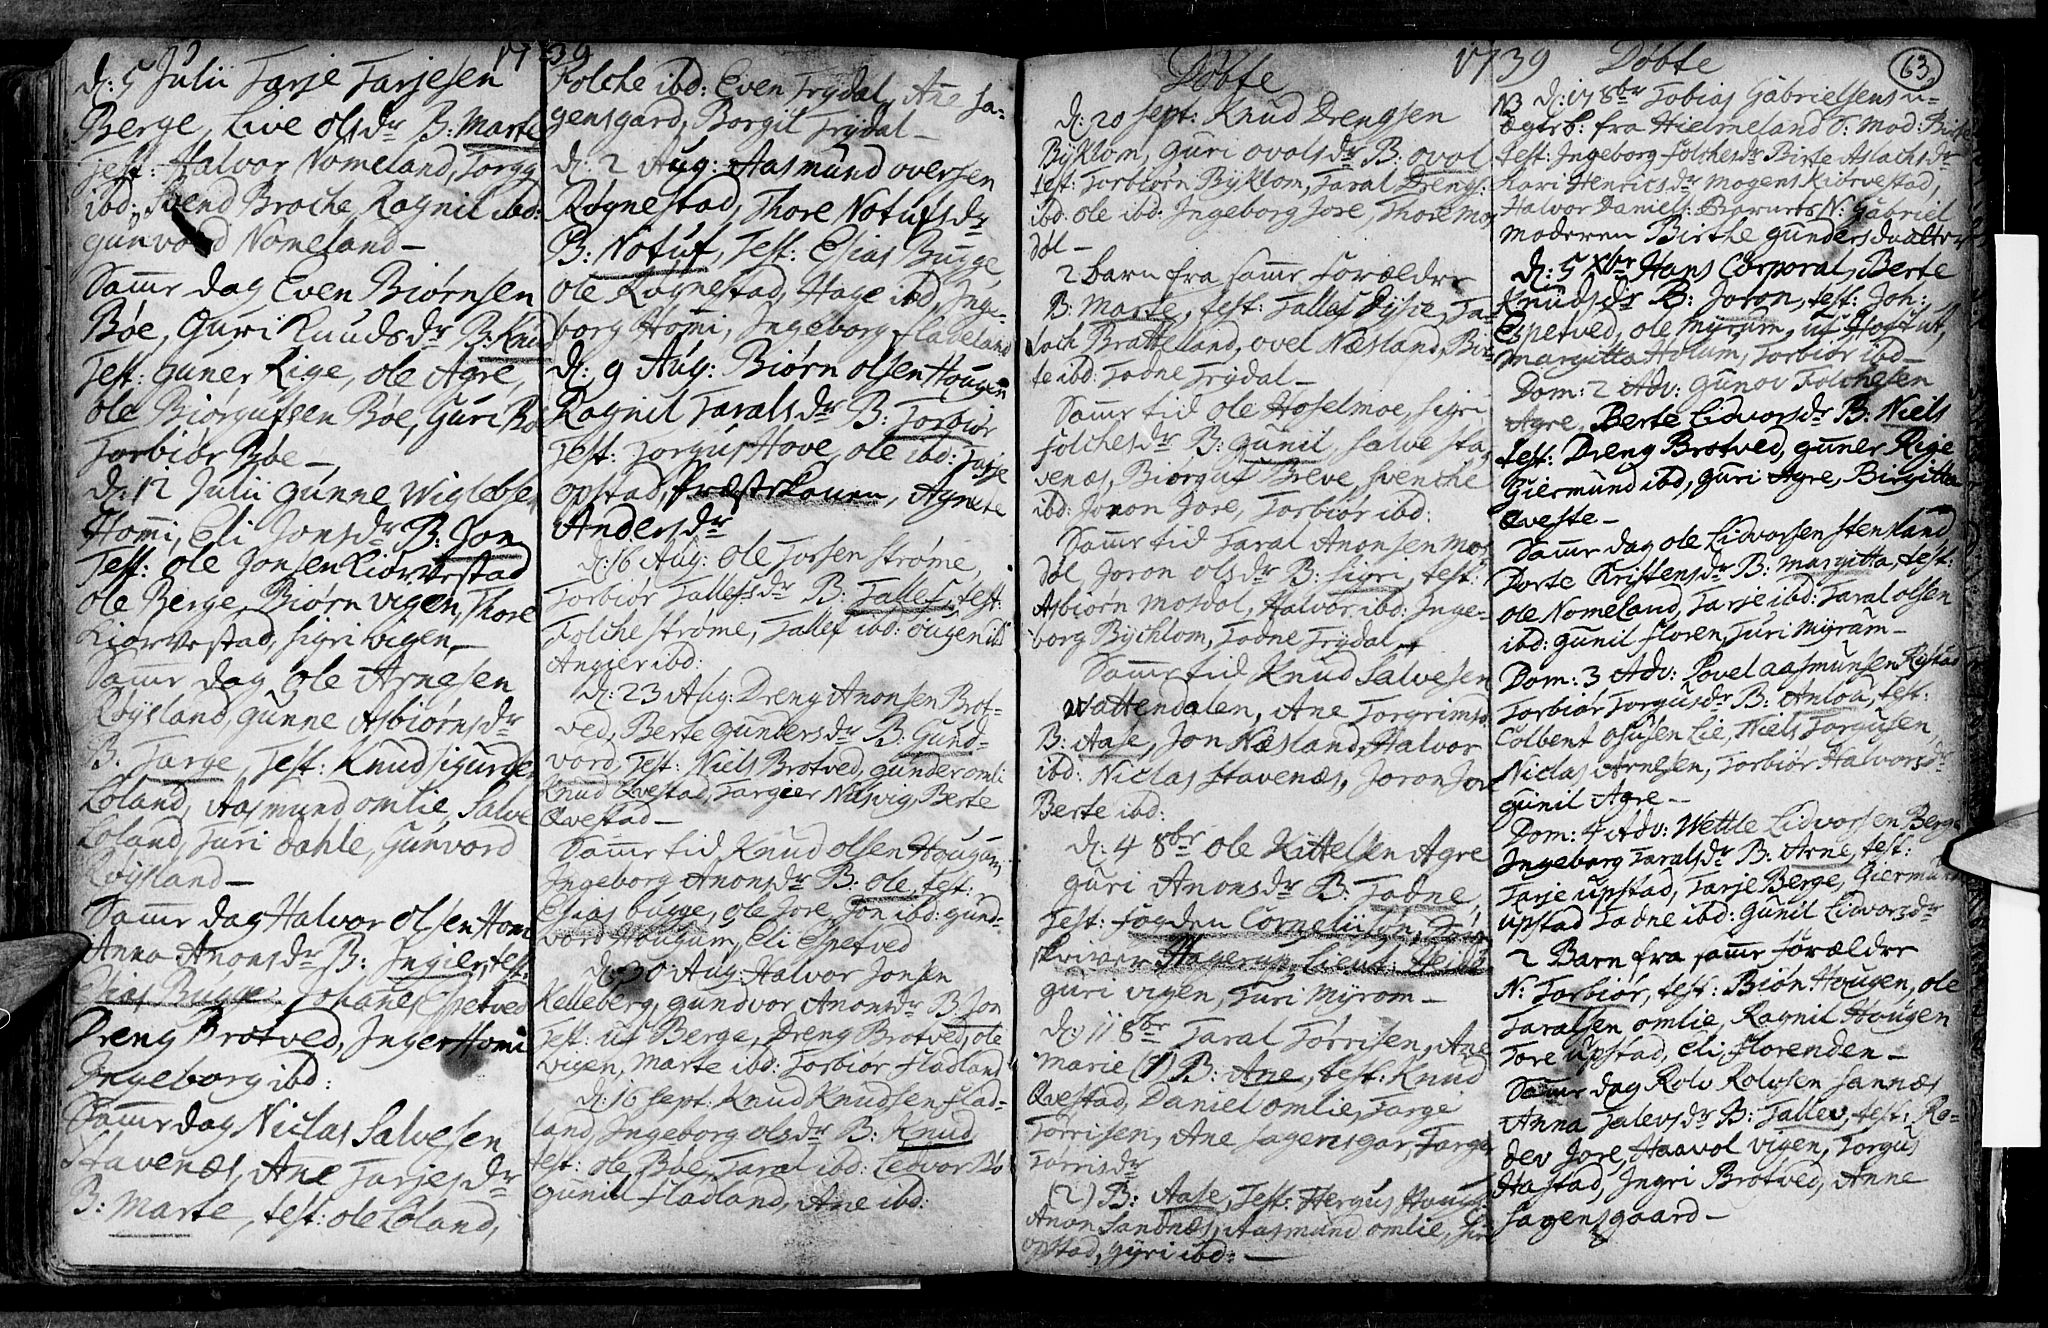 1739
d: 5 Julii Tarje Tarjesen
Berge, Live olsdr B: Marte
Test: Halvor Nomeland, Torgy
ibd: Svend Broche Ragnil ibd:
gunvord Nomeland —
Samr dag Even Biørnsen
Bøe, Guri Knudsdr B: Knud
Test: guner Rige, ole Agre,
ole Biørgufsen Bøe, Guri Bø
Torbiør Bøe —
d: 12 Julii gunne Wiglebse
Homi, Eli Jonsdr B: Jon
Test: ole Jonsen Kiørvestad
ole Berge, Biørn vigen, Thore
Kiørvestad, Sigri vigen, —
Samr dag ole Arnesen
Røysland, gunne Asbiørnsdr
B. Targe, Test: Knud Sigurdse
Loland, Aasmund omlie, Salve
Loland, Turi dahle, Gunvord
Røysland —
Samr dag Halvor olsen Hom
Anna Anonsdr B: Ingier, test:
Elias Bugge, Johanes Espetved
Dreng Brotved, Inger Homi
Ingeborg ibd:
Samr dag Niclas Salvesen
Stavenæs, Ane Tarjesdr
B: Marte, test: ole Loland,
Folche ibd: Even Trydal, Ane Sa-
gensgard, Borgil Trydal —
d: 2 Aug: Aasmund oversen
Røgnestad, Thore Notufsdr
B: Notuf, Test: Elias Bugge,
ole Røgnestad, Hage ibd, Inge-
borg Homi, Ingeborg fladeland
d: 9 Aug: Biørn olsen Hougen
Ragnil Taralsdr B: Torbiør
Test: Torgus Hove, ole ibd: Tarje
opstad, Præstekonen, Agnete
Andersdr
d: 16 Aug: ole Torsen Strøme,
Torbiør Tallefsdr B: Tallef, test:
Folche Strøme, Tallef ibd: ougen ib
Angier ibd:
d: 23 Aug: Dreng Anonsen Brot-
ved, Berte Gundersdr B: Gund-
vord, Test: Niels Brotved, gunder omli
Knud Qvestad, Targier Nesvig, Berte
Qvestad —
Samr tid Knud olsen Hougum,
Ingeborg Anonsdr B: ole, test:
Elias bugge, ole Jore, Jon ibd: gund-
vord Hougum, Eli Espetved
d: 30 Aug: Halvor Jonsen
Kelleberg, gundvor Anonsdr B: Jon
Test: uf Berge, Dreng Brotved, ole
vigen, Marte ibd: Torbiør fladland
d: 16 Sept: Knud Knudsen flad-
land, Ingeborg olsdr B: Knud
test: ole Bøe, Taral ibd: Ledvor Bø
Gunil fladland, Ane ibd:
1739
Døbte
d: 20 Sept: Knud Drengsen
Byklom, guri ovolsdr B: ovol
test: Torbiørn Byklom, Taral Drengs:
ibd: ole ibd: Ingeborg Jore, Thore Mos
døl —
2 barn fra samr forældre
B: Marte, test: Tallef Dysie, As-
lach Bratteland, ovel Næsland, Bir-
te ibd: Todne Trydal —
Samr tid ole Hoselmoe, Sigri
folchesdr B: gunil, Salve Sta-
venæs, Biorguf Breve, Svenche
ibd: Joron Jore, Torbiør ibd:
Samr tid Taral Anonsen Mos
døl, Joron olsdr B: Sigri, test:
Asbiørn Mosdøl, Halvor ibd: Inge-
borg Bychlom, Todne Trydal
Samr tid Knud Salvesen
Vattendalen, Ane Torgrimsd
B: Aase, Jon Næsland, Halvor
ibd: Niclas Stavenæs, Joron Jore
Berte ibd:
d: 4 8br ole Kittelsen Agre
guri Anonsdr B: Todne,
Test: fogden Cornelius
skriver Hagerup, Lieut: Heide
guri vigen, Turi Myrom —
d: 11 8br Taral Tørrisen, Ane
Marie (1) B: Ane, test: Knud
Qvestad, Daniel omlie, Targe
Tørrisen, Ane Sagensgar, Targe
Tørrisdr
(2) B: Aase, Test: Hergus Houg
Anon Sandnæs, Aasmund omlie,
opstad, Gyri ibd: —
Døbte
63.
NB d: 17 8br Tobias Gabrielsens u-
ægteb: fra Hielmeland S: Mod: Birthe
Test: Ingeborg folchesdr Birte Aslachsdr
Kari Henricsdr Mogens Kiørvestad,
Halvor Daniels: Barnets N: Gabriel
Moderen Birthe gundersdaatter
d: 5 Xbr Hans Corporal, Berte
Knudsdr B: Joron, test: Joh:
Espetved, ole Myrum,
Margitta Holum, Torbiør ibd —
Dom: 2 Adv: gunov Folchesen
Agre, Berte Lidvorsdr B: Niels
test: Dreng Brotved, guner Rige
Giermund ibd, guri Agre, Birgitta
Qveste —
Samr dag ole Lidvorsen Stenland,
Dorte Kristensdr B: Margitta, test:
ole Nomeland, Tarje ibd: Taral olsen
ibd: gunil floren, Turi Myrum —
Dom: 3 Adv: Povel Aasmunsen Rystad
Torbiør Torgusdr B: Anlou, test:
Colbent Osusen Lie, Niels Torgusen,
Niclas Arnesen, Torbiør Halvorsdr
gunil Agre —
Dom: 4 Adv: Wettle Lidvorsen Berge
Ingeborg Taralsdr B: Arne, test:
Tarje upstad, Tarje Berge, Giermund
upstad Todne ibd: Gunil Lidvorsdr
2 Barn fra samr forældre
N: Torbiør, test: Biøn Hougen, ole
Taralsen omlie, Ragnil Hougen
Tore upstad, Eli, florenden —
Samr dag Rolv Rolvsen Sannæs
Anna Talevsdr B: Tallev, test: Ro-
dev Jore, Haavol vigen, Torgus
Hastad, Ingri Brotved, Anne
Sagensgaard —